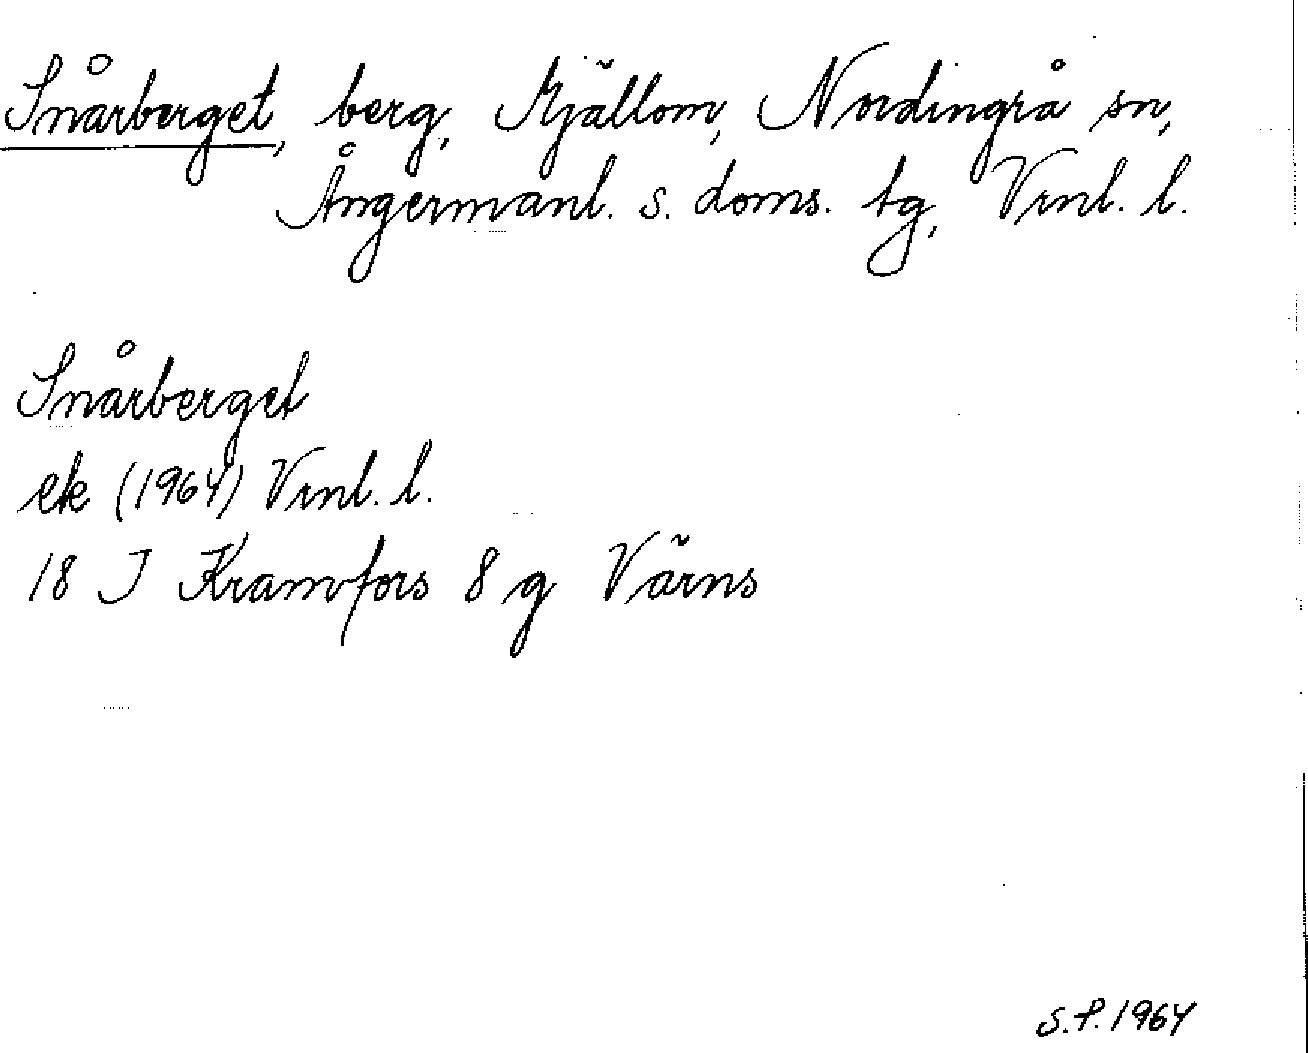 Snårberget, berg, Mjällom, Nordingrå sn,
Ångermanl. s. doms. tg, Vrnl. l.
Snårberget
ek (1964) Vrnl. l.
18 J Kramfors 8 g Värns
S.P. 1964